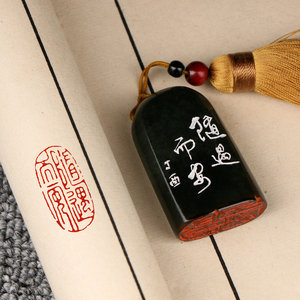 随遇
而安
丁酉
随遇
而安